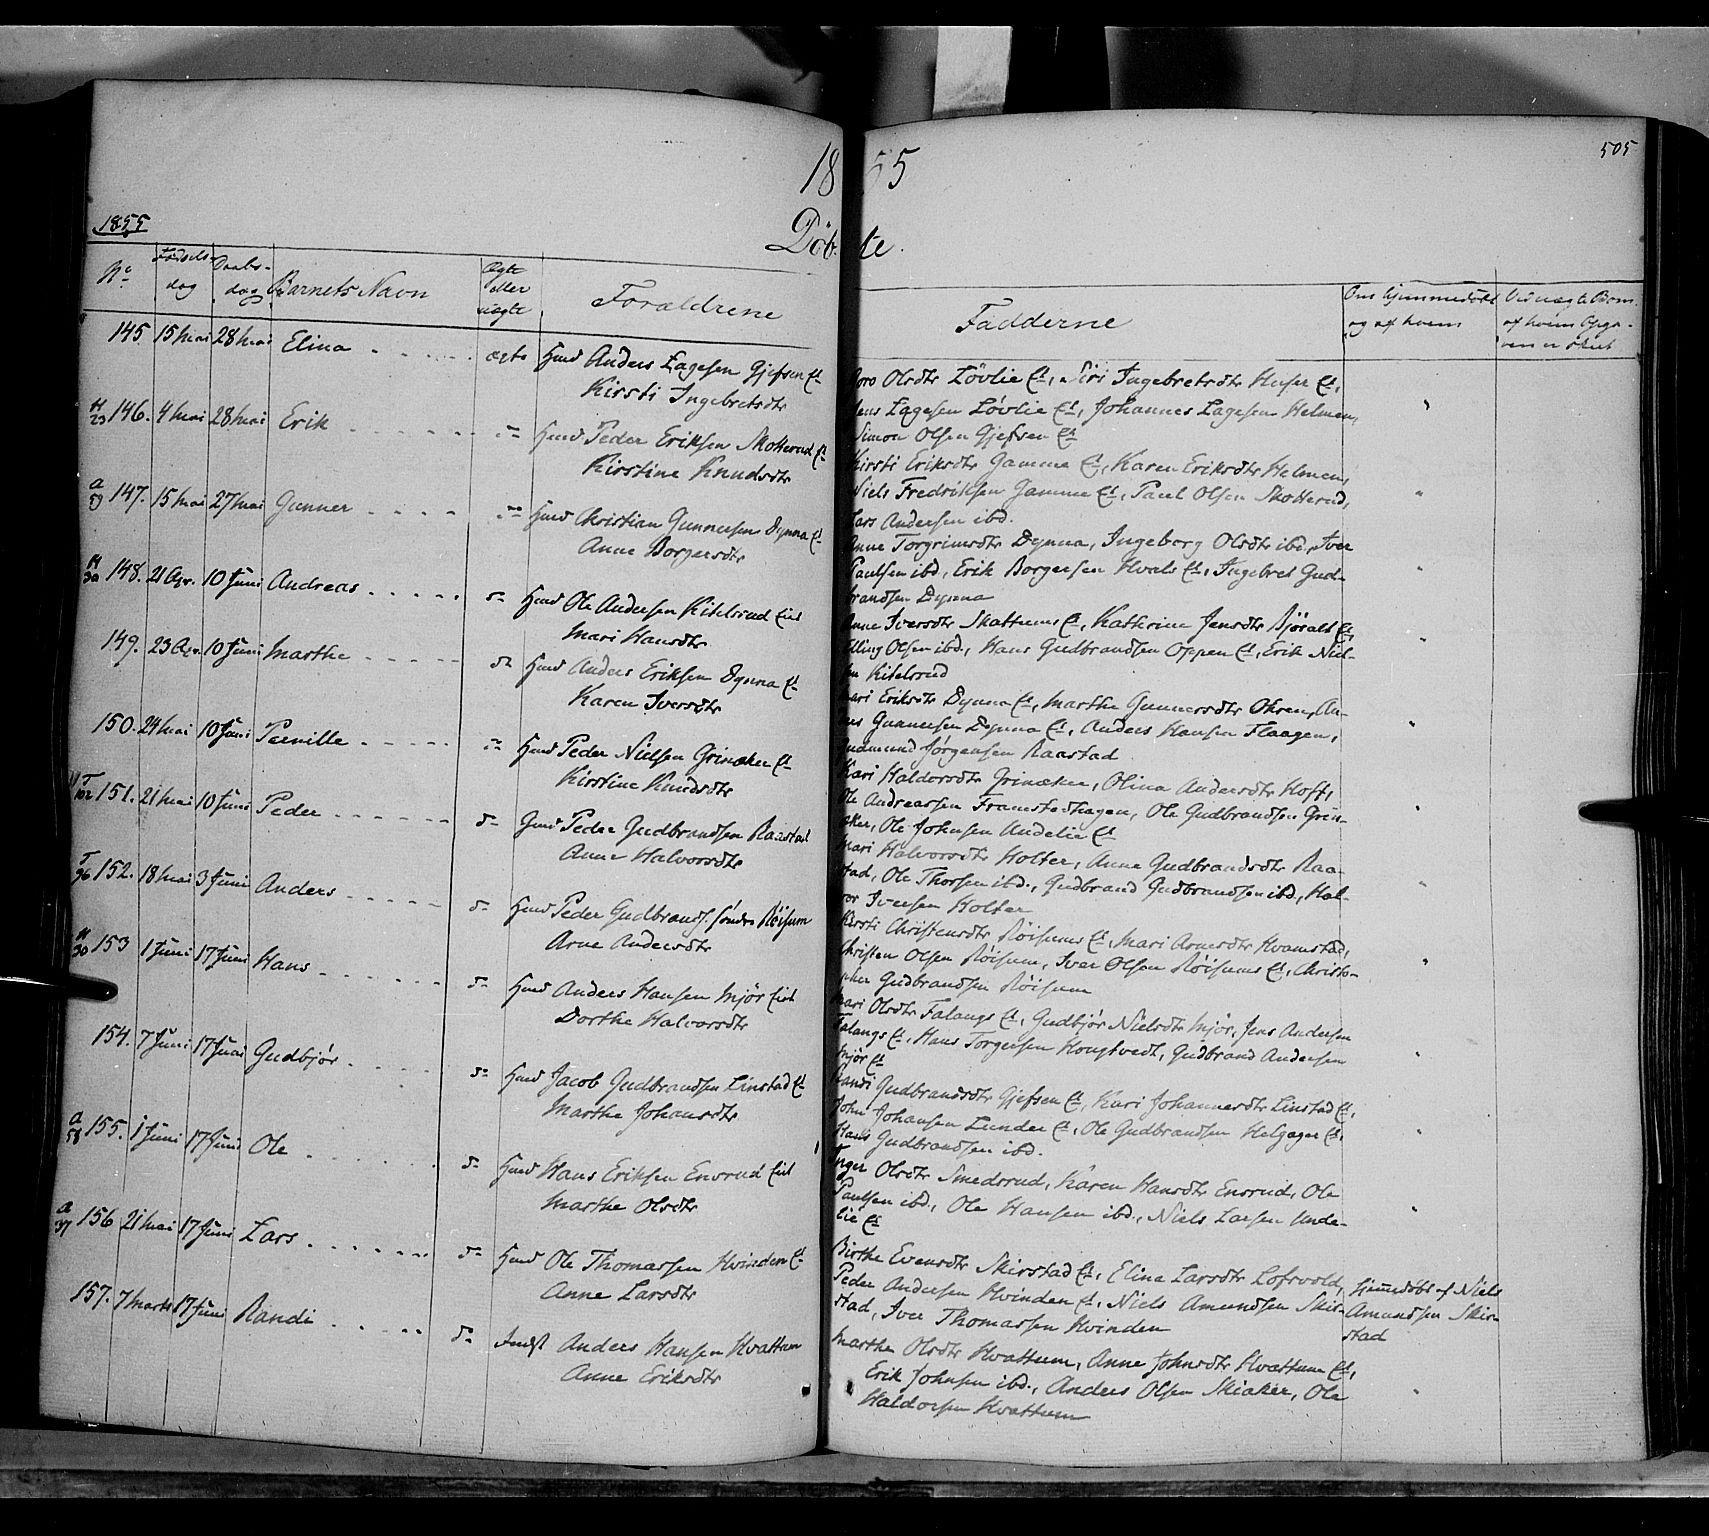 1855
505
1855
Döbte.
No
Fødsels-dag
Daabs-dag
Barnets Navn
Ægte eller uægte
Forældrene
Fadderne
Om hjemmedøbt og af hvem
Ved uægte Børn af hvem Opga-ven er skeet
145. 15 Mai 28 Mai Elina ægte Huusd Anders Lagesen Gjefsen Et
Kirsti Ingebretsdtr
Goro Olsdtr Løvlie Et, Siri Ingebretsdtr Hufer Et,
Jens Lagesen Løvlie Et, Johannes Lagesen Helmen,
Simon Olsen Gjefsen Et
H 23 146. 4 Mai 28 Mai Erik do Huusd Peder Eriksen Skotterud Et
Kirstine Knudsdtr
Kirsti Eriksdtr Gamme Et, Karen Eriksdtr Helmen,
Niels Fredriksen Gamme Et, Paul Olsen Skotterud,
Lars Andersen ibd.
147. 15 Mai 27 Mai Gunner do Huusd Christian Gunnersen Dynna Et
Anne Borgersdtr
Anne Torgrimsdtr Dynna, Ingeborg Olsdtr ibd, Iver
Paulsen ibd, Erik Borgersen Hvals Et, Ingebret Gud-
brandsen Dynna
H 30 148. 21 Apr. 10 Juni Andreas do Huusd Ole Andersen Kittelsrud Eiet
Mari Hansdtr
Anne Iversdtr Skattums Et, Kathrine Jensdtr Björalt Et,
Elling Olsen ibd., Hans Gudbrandsen Oppen Et, Erik Niel-
sen Kittelsrud
149. 23 Apr. 10 Juni Marthe do Huusd Anders Eriksen Dynna Et
Karen Iversdtr
Mari Eriksdtr Dynna Et, Marthe Gunnersdtr Okren, An-
ders Gunnersen Dynna Et, Anders Hansen Flaagen,
Gudmund Jørgensen Raastad
150. 24 Mai 10 Juni Pernille do Huusd Peder Nielsen Grinaker Et
Kirstine Knudsdtr
Kari Haldorsdtr Grinaker, Olina Andersdtr Hoft,
Ole Andreassen Framstadhagen, Ole Gudbrandsen Grin-
aker, Ole Johnsen Andelie Et
102 151. 21 Mai 10 Juni Peder do Gmd Peder Gudbrandsen Raastad
Anne Halvorsdtr
Mari Halvorsdtr Holter, Anne Gudbrandsdtr Raa-
stad, Ole Thorsen ibd., Gudbrand Gudbrandsen ibd., Hal-
vor Iversen Holter
T 36 152. 18 Mai 3 Juni Anders do Huusd Peder Gudbrands. søndre Röisum
Arne Andersdtr
Kirsti Christensdtr Röisums Et, Mari Arnesdtr Kvamstad,
Christen Olsen Röisum, Iver Olsen Röisums Et, Christo-
pher Gudbrandsen Röisum
H 30 153 1 Juni 17 Juni Hans do Huusd Anders Hansen Mjør Eiet
Dorthe Halvorsdtr
Mari Olsdtr Falangs Et, Gudbjør Nielsdtr Mjør, Jens Andersen
Falangs Et, Hans Torgersen Hougtvedt, Gudbrand Andersen
Mjør Et
154. 7 Juni 17 Juni Gudbjør do Huusd Jacob Gudbrandsen Linstad Et
Marthe Johansdtr
Randi Gudbrandsdtr Gjefsen Et, Kari Johannesdtr Linstad Et,
John Johansen Lunder Et, Ole Gudbrandsen Helgager Et,
Hans Gudbrandsen ibd.
a 58 155. 1 Juni 17 Juni Ole do Huusd Hans Eriksen Ensrud Eiet
Marthe Olsdtr
Inger Olsdtr Smedsrud, Karen Hansdtr Ensrud, Ole
Paulsen ibd., Ole Hansen ibd., Niels Larsen Unde-
lie Et
a 37 156 21 Mai 17 Juni Lars do Huusd Ole Thomassen Hvinden Et
Anne Larsdtr
Birthe Evensdtr Skirstad Et, Elina Larsdtr Lofsvold,
Peder Andersen Hvinden Et, Niels Amundsen Skir-
stad, Iver Thomassen Hvinden
Hjemmedøbt af Niels
Amundsen Skir-
stad
157. 7 Marts 17 Juni Randi do Indst Anders Hansen Hvattum
Anne Eriksdtr
Marthe Olsdtr Hvattum, Anne Johnsdtr Hvattum Et,
Erik Johnsen ibd., Anders Olsen Skiaker, Ole
Haldorsen Hvattum